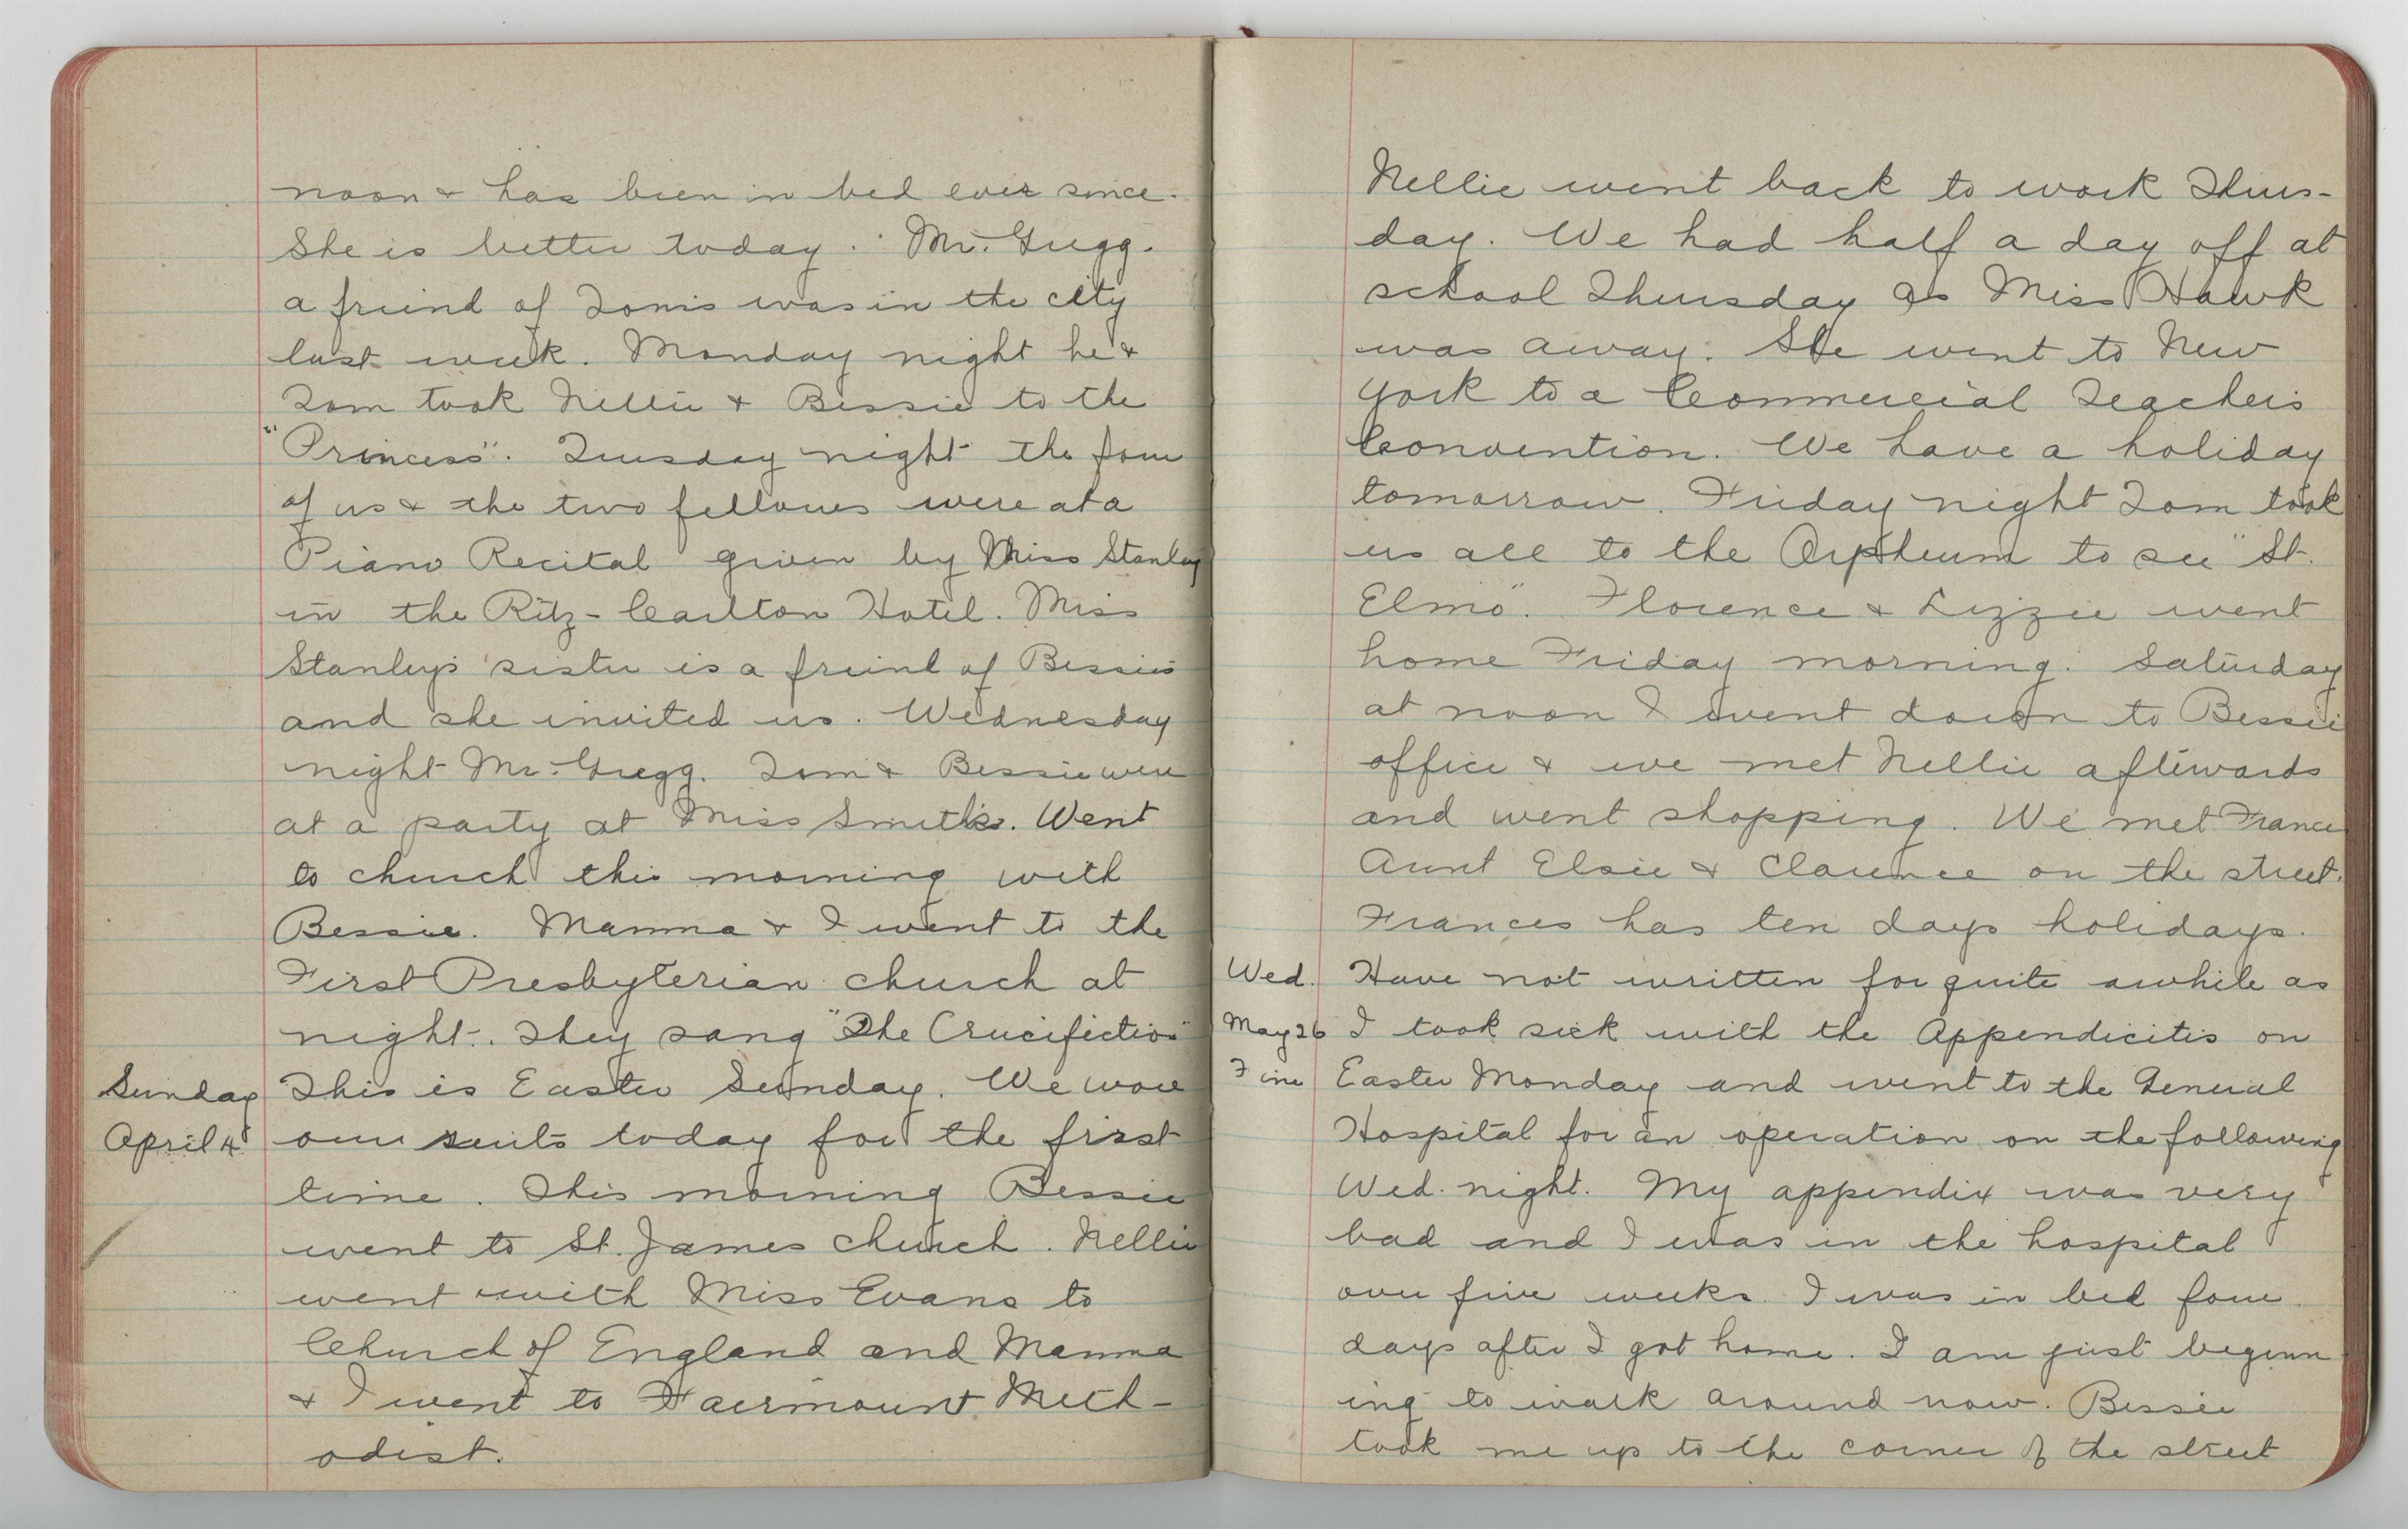 noon & has been in bed ever since.
She is better today. Mr. Gregg.
a friend of Toms was in the city
last week. Monday night he &
Tom took Nellie & Bessie to the
"Princess". Tuesday night the four
of us & the two fellows were at a
Piano Recital given by Miss Stanley
in the Ritz-Carlton Hotel. Miss
Stanley's sister is a freind of Bessies
and she invited us. Wednesday
night Mr. Gregg. Tom & Bessie were
at a party at Miss Smith's. Went
to church this morning with
Bessie. Mamma & I went to the
First Presbyterian church at
night. They sang "The Crucifiction"
Sunday This is Easter Sunday. We wore
April 4 our suits today for the first
time. This morning Bessie
went to St. James church. Nellie
went with Miss Evans to
Church of England and Mamma
& I went to Fairmount Meth-
odist.
Nellie went back to work Thurs-
day. We had half a day off at
school Thursday as Miss Hawk
was away. She went to New
York to a Commercial Teachers
Convention. We have a holiday
tomorrow. Friday night Tom took
us all to the Orpheum to see "St.
Elmo". Florence & Lizzie went
home Friday morning. Saturday
at noon I went down to Bessie
office & we met Nellie afterwards
and went shopping. We met Frances
Aunt Elsie & Clarence on the street.
Frances has ten days holidays.
Wed. Have not written for quite awhile as
May 26 I took sick with the Appendicitis on
Fine Easter Monday and went to the General
Hospital for an operation on the following
Wed. night. My appendix was very
bad and I was in the hospital
over five weeks. I was in bed four
days after I got home. I am just beginn
ing to walk around now. Bessie
took me up to the corner of the street